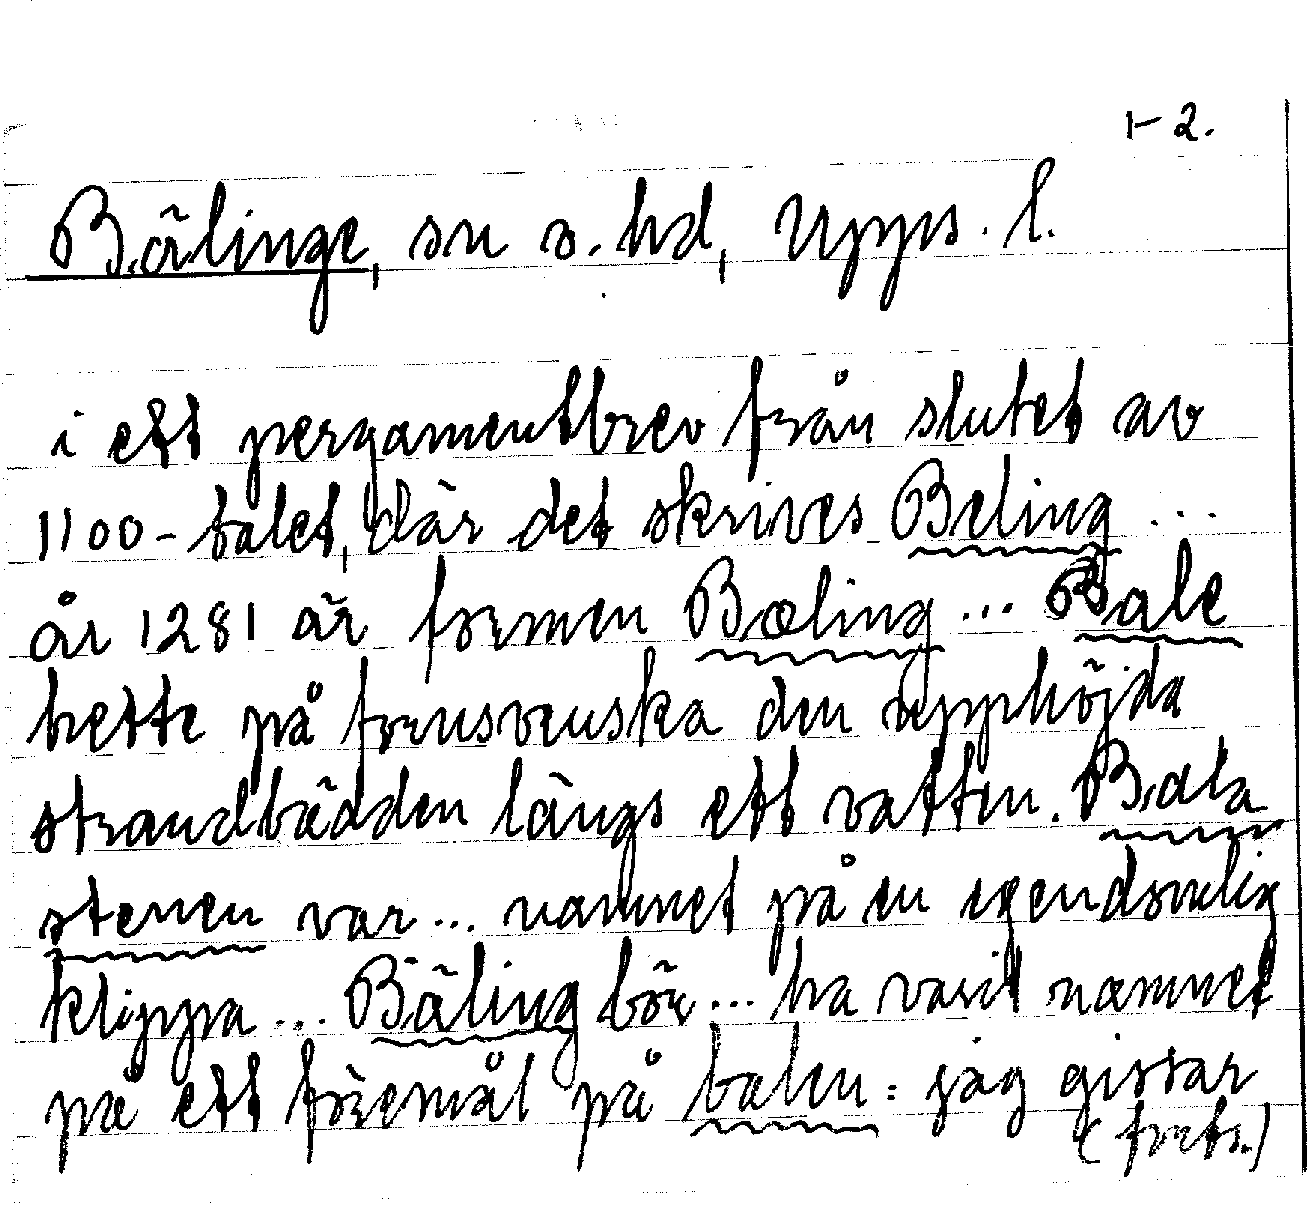 1-2.
Bälinge, sn o. hd, Upps. l.
i ett pergamentbrev från slutet av
1100-talet, där det skrives Beling ...
år 1281 är formen Bæling ... Bale
hette på fornsvenska den upphöjda
strandbädden längs ett vatten. Bala
stenen var ... namnet på en egendomlig
klippa ... Bäling bör ... ha varit namnet
på ett föremål på balen: jag gissar
(forts.)